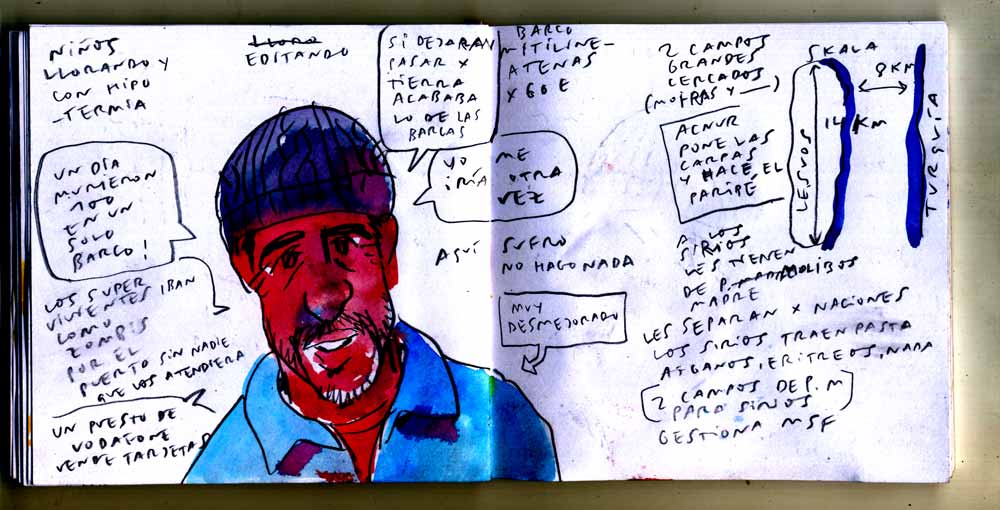 NIÑOS
LLORANDO Y
CON HIPO
-TERMIA
LLORO
EDITANDO
SI DEJARAN
PASAR X
TIERRA
ACABABA
LO DE LAS
BARCAS
BARCO
MITILINE-
ATENAS
X 60 E
UN DÍA
MURIERON
100
EN UN
SOLO
BARCO!
YO ME
IRÍA OTRA
VEZ
AQUÍ SUFRO
NO HAGO NADA
MUY
DESMEJORADO
LOS SUPER
VIVIENTES IBAN
COMO
ZOMBIS
POR EL
PUERTO SIN NADIE
QUE LOS ATENDIERA
UN PUESTO DE
VODAFONE
VENDE TARJETAS
2 CAMPOS
GRANDES
CERCADOS
(MOIRAS Y ——)
ACNUR
PONE LAS
CARPAS
Y HACE EL
PARIPÉ
SKALA
8 KM
14 KM
LESVOS
TURQUÍA
A LOS
SIRIOS
LES TIENEN
DE P.
MADRE
LES SEPARAN X NACIONES
LOS SIRIOS TRAEN PASTA
AFGANOS, ERITREOS, NADA
(2 CAMPOS DE P. M
PARA SIRIOS)
GESTIONA MSF